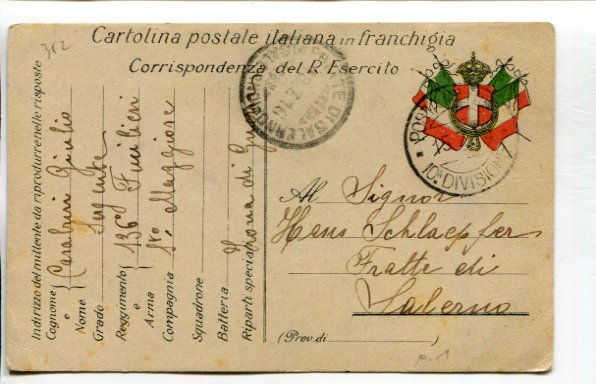 382
Cartolina postale italiana in franchigia
Corrispondenza del R. Esercito
Indirizzo del mittente da riprodurre nelle risposte
Cognome e Nome
Giulio
Grado
Reggimento e Arma 136º Fucilieri
Compagnia Maggiore
Squadrone
Batteria
Riparti speciali Zona di
POSTA
10ª DIVISIONE
SALERNO
Al Signor
Hans Schlaepfer
Fratte di
Salerno
(Prov. di )